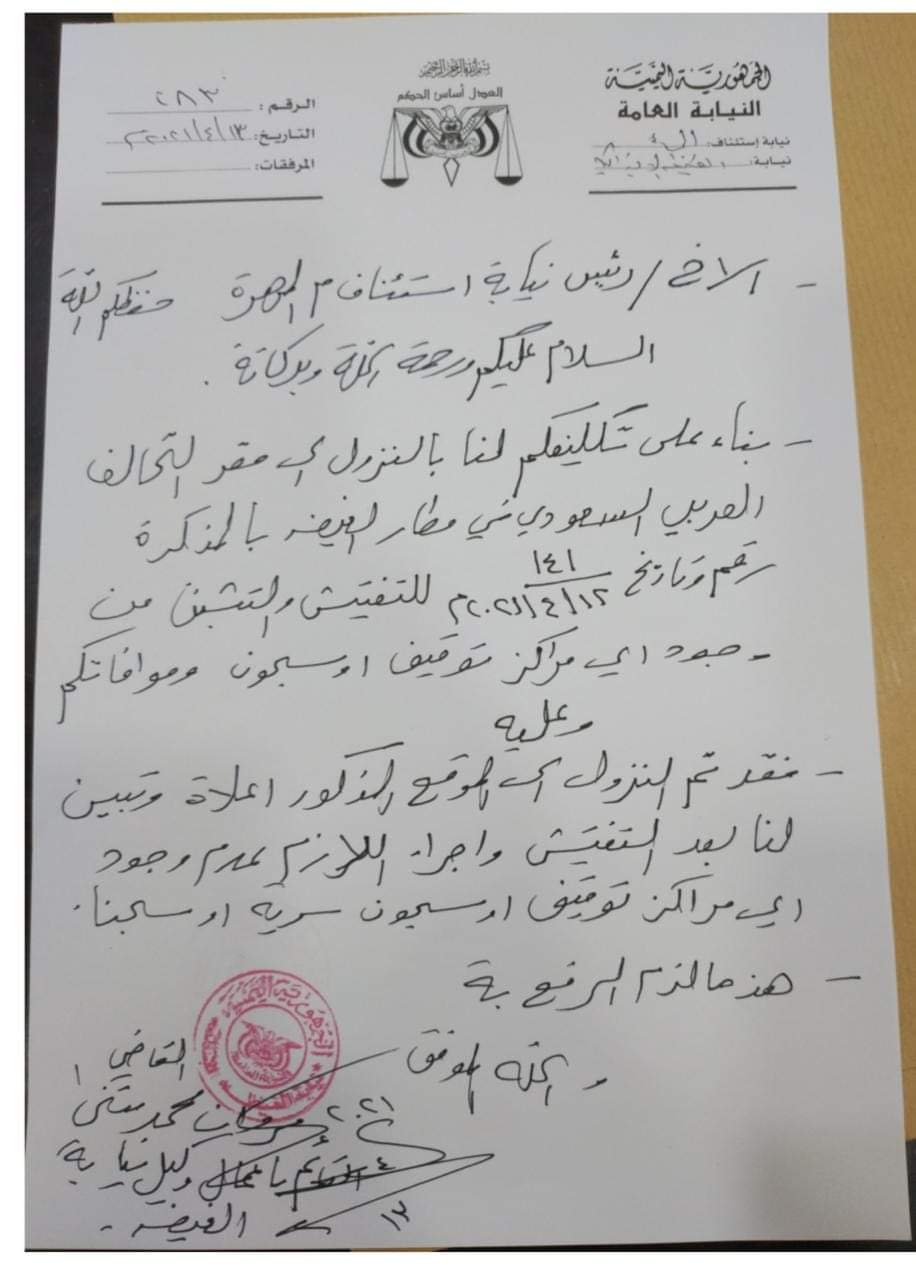 الجمهورية اليمنية
النيابة العامة
نيابة إستئناف:
نيابة:
بسم الله الرحمن الرحيم
العدل أساس الحكم
الرقم: ٢٨٣
التاريخ: ١٣/٤/٢٠٢١م
المرفقات:
- الاخ / رئيس نيابة استئناف م المهرة حفظكم اللة
السلام عليكم ورحمة اللة وبركاتة .
- بناء على تكليفكم لنا بالنزول الى مقر التحالف
العربي السعودي في مطار الغيضه بالمذكرة
رقم وتاريخ ١٤١ ١٢/٤/٢٠٢١م للتفتيش والتثبت من
وجود اي مراكز توقيف او سجون وموافاتكم
وعليه
- فقد تم النزول الى الموقع المذكور اعلاة وتبين
لنا بعد التفتيش واجراء اللازم عدم وجود
اي مراكز توقيف او سجون سرية او سجنا.
- هذ ما لزم الرفع بة
و اللة الموفق
القاضي /
محمد مثنى
القائم باعمال وكيل نيابة
الغيضه -
٢٠٢١
٤
١٣
الجمهورية اليمنية